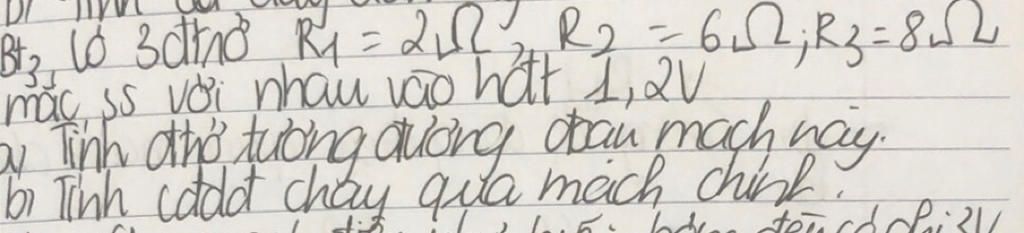 Bt3, Có 3đtrở R1 = 2Ω, R2 = 6Ω; R3 = 8Ω
mắc ss với nhau vào hđt 1,2V
a) Tính đtrở tương đương đoạn mạch này.
b) Tính cđdđ chạy qua mạch chính.